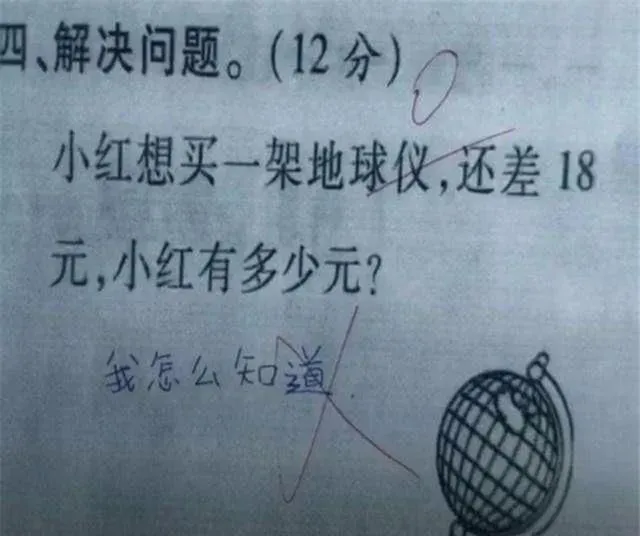 四、解决问题。(12分)
0
小红想买一架地球仪,还差18
元,小红有多少元?
我怎么知道.